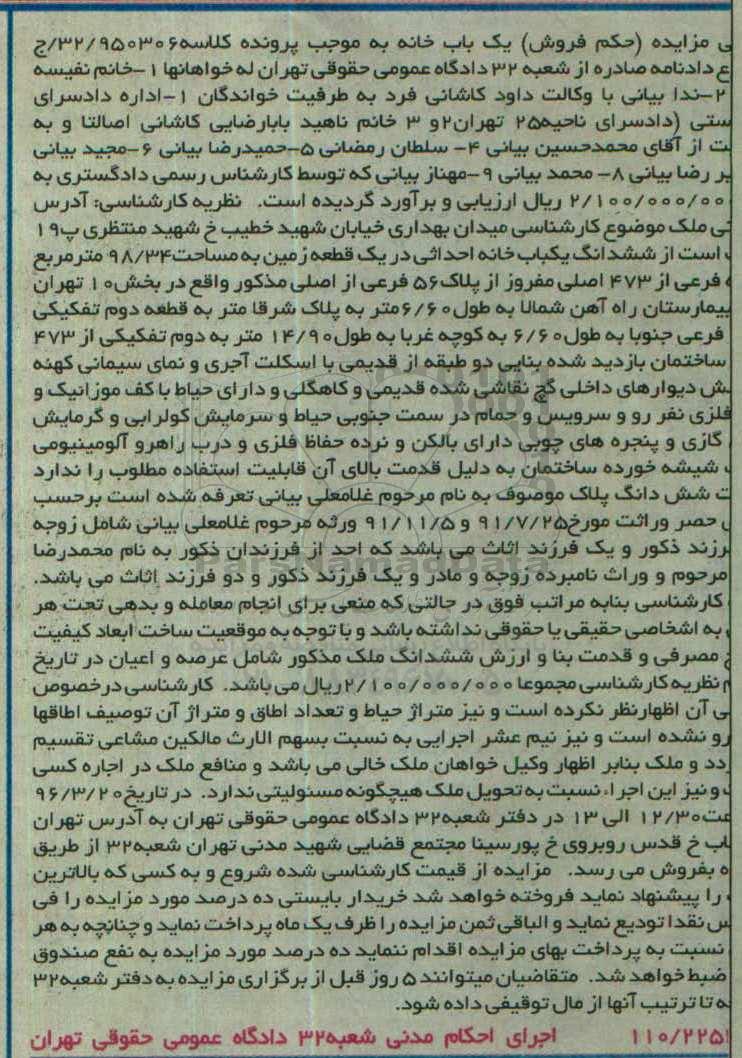 ی مزایده (حکم فروش) یک باب خانه به موجب پرونده کلاسه۳۲/۹۵۰۳۰۶/ج
ع دادنامه صادره از شعبه ۳۲ دادگاه عمومی حقوقی تهران له خواهانها ۱-خانم نفیسه
۲-ندا بیانی با وکالت داود کاشانی فرد به طرفیت خواندگان ۱-اداره دادسرای
ستی (دادسرای ناحیه۲۵ تهران۲و ۳ خانم ناهید بابارضایی کاشانی اصالتا و به
ت از آقای محمدحسین بیانی ۴- سلطان رمضانی ۵-حمیدرضا بیانی ۶-مجید بیانی
یر رضا بیانی ۸- محمد بیانی ۹-مهناز بیانی که توسط کارشناس رسمی دادگستری به
۲/۱۰۰/۰۰۰/۰۰ ریال ارزیابی و برآورد گردیده است. نظریه کارشناسی: آدرس
تی ملک موضوع کارشناسی میدان بهداری خیابان شهید خطیب خ شهید منتظری پ۱۹
است از ششدانگ یکباب خانه احداثی در یک قطعه زمین به مساحت۹۸/۳۴ مترمربع
ه فرعی از ۴۷۳ اصلی مفروز از پلاک۵۶ فرعی از اصلی مذکور واقع در بخش۱۰ تهران
بیمارستان راه آهن شمالا به طول۶/۶۰متر به پلاک شرقا متر به قطعه دوم تفکیکی
فرعی جنوبا به طول۶/۶۰ به کوچه غربا به طول۱۴/۹۰ متر به دوم تفکیکی از ۴۷۳
ساختمان بازدید شده بنایی دو طبقه از قدیمی با اسکلت آجری و نمای سیمانی کهنه
ش دیوارهای داخلی گچ نقاشی شده قدیمی و کاهگلی و دارای حیاط با کف موزائیک و
فلزی نفر رو و سرویس و حمام در سمت جنوبی حیاط و سرمایش کولرابی و گرمایش
گازی و پنجره های چوبی دارای بالکن و نرده حفاظ فلزی و درب راهرو آلومینیومی
شیشه خورده ساختمان به دلیل قدمت بالای آن قابلیت استفاده مطلوب را ندارد
ت شش دانگ پلاک موصوف به نام مرحوم غلامعلی بیانی تعرفه شده است برحسب
ی حصر وراثت مورخ۹۱/۷/۲۵ و ۹۱/۱۱/۵ ورثه مرحوم غلامعلی بیانی شامل زوجه
رزند ذکور و یک فرزند اثاث می باشد که احد از فرزندان ذکور به نام محمدرضا
مرحوم و وراث نامبرده زوجه و مادر و یک فرزند ذکور و دو فرزند اثاث می باشد.
کارشناسی بنابه مراتب فوق در حالتی که منعی برای انجام معامله و بدهی تحت هر
به اشخاصی حقیقی یا حقوقی نداشته باشد و با توجه به موقعیت ساخت ابعاد کیفیت
ح مصرفی و قدمت بنا و ارزش ششدانگ ملک مذکور شامل عرصه و اعیان در تاریخ
م نظریه کارشناسی مجموعا ۲/۱۰۰/۰۰۰/۰۰۰ریال می باشد. کارشناسی درخصوص
ی آن اظهارنظر نکرده است و نیز متراژ حیاط و تعداد اطاق و متراژ آن توصیف اطاقها
رو نشده است و نیز نیم عشر اجرایی به نسبت بسهم الارث مالکین مشاعی تقسیم
دد و ملک بنابر اظهار وکیل خواهان ملک خالی می باشد و منافع ملک در اجاره کسی
و نیز این اجراء نسبت به تحویل ملک هیچگونه مسئولیتی ندارد. در تاریخ۹۶/۳/۲۰
عت۱۲/۳۰ الی ۱۳ در دفتر شعبه۳۲ دادگاه عمومی حقوقی تهران به آدرس تهران
اب خ قدس روبروی خ پورسینا مجتمع قضایی شهید مدنی تهران شعبه۳۲ از طریق
ه بفروش می رسد. مزایده از قیمت کارشناسی شده شروع و به کسی که بالاترین
را پیشنهاد نماید فروخته خواهد شد خریدار بایستی ده درصد مورد مزایده را فی
س نقدا تودیع نماید و الباقی ثمن مزایده را ظرف یک ماه پرداخت نماید و چنانچه به هر
نسبت به پرداخت بهای مزایده اقدام ننماید ده درصد مورد مزایده به نفع صندوق
ضبط خواهد شد. متقاضیان میتوانند ۵ روز قبل از برگزاری مزایده به دفتر شعبه۳۲
ه تا ترتیب آنها از مال توقیفی داده شود.
۱۱۰/۲۲۵۱ اجرای احکام مدنی شعبه۳۲ دادگاه عمومی حقوقی تهران
ParsNamadData